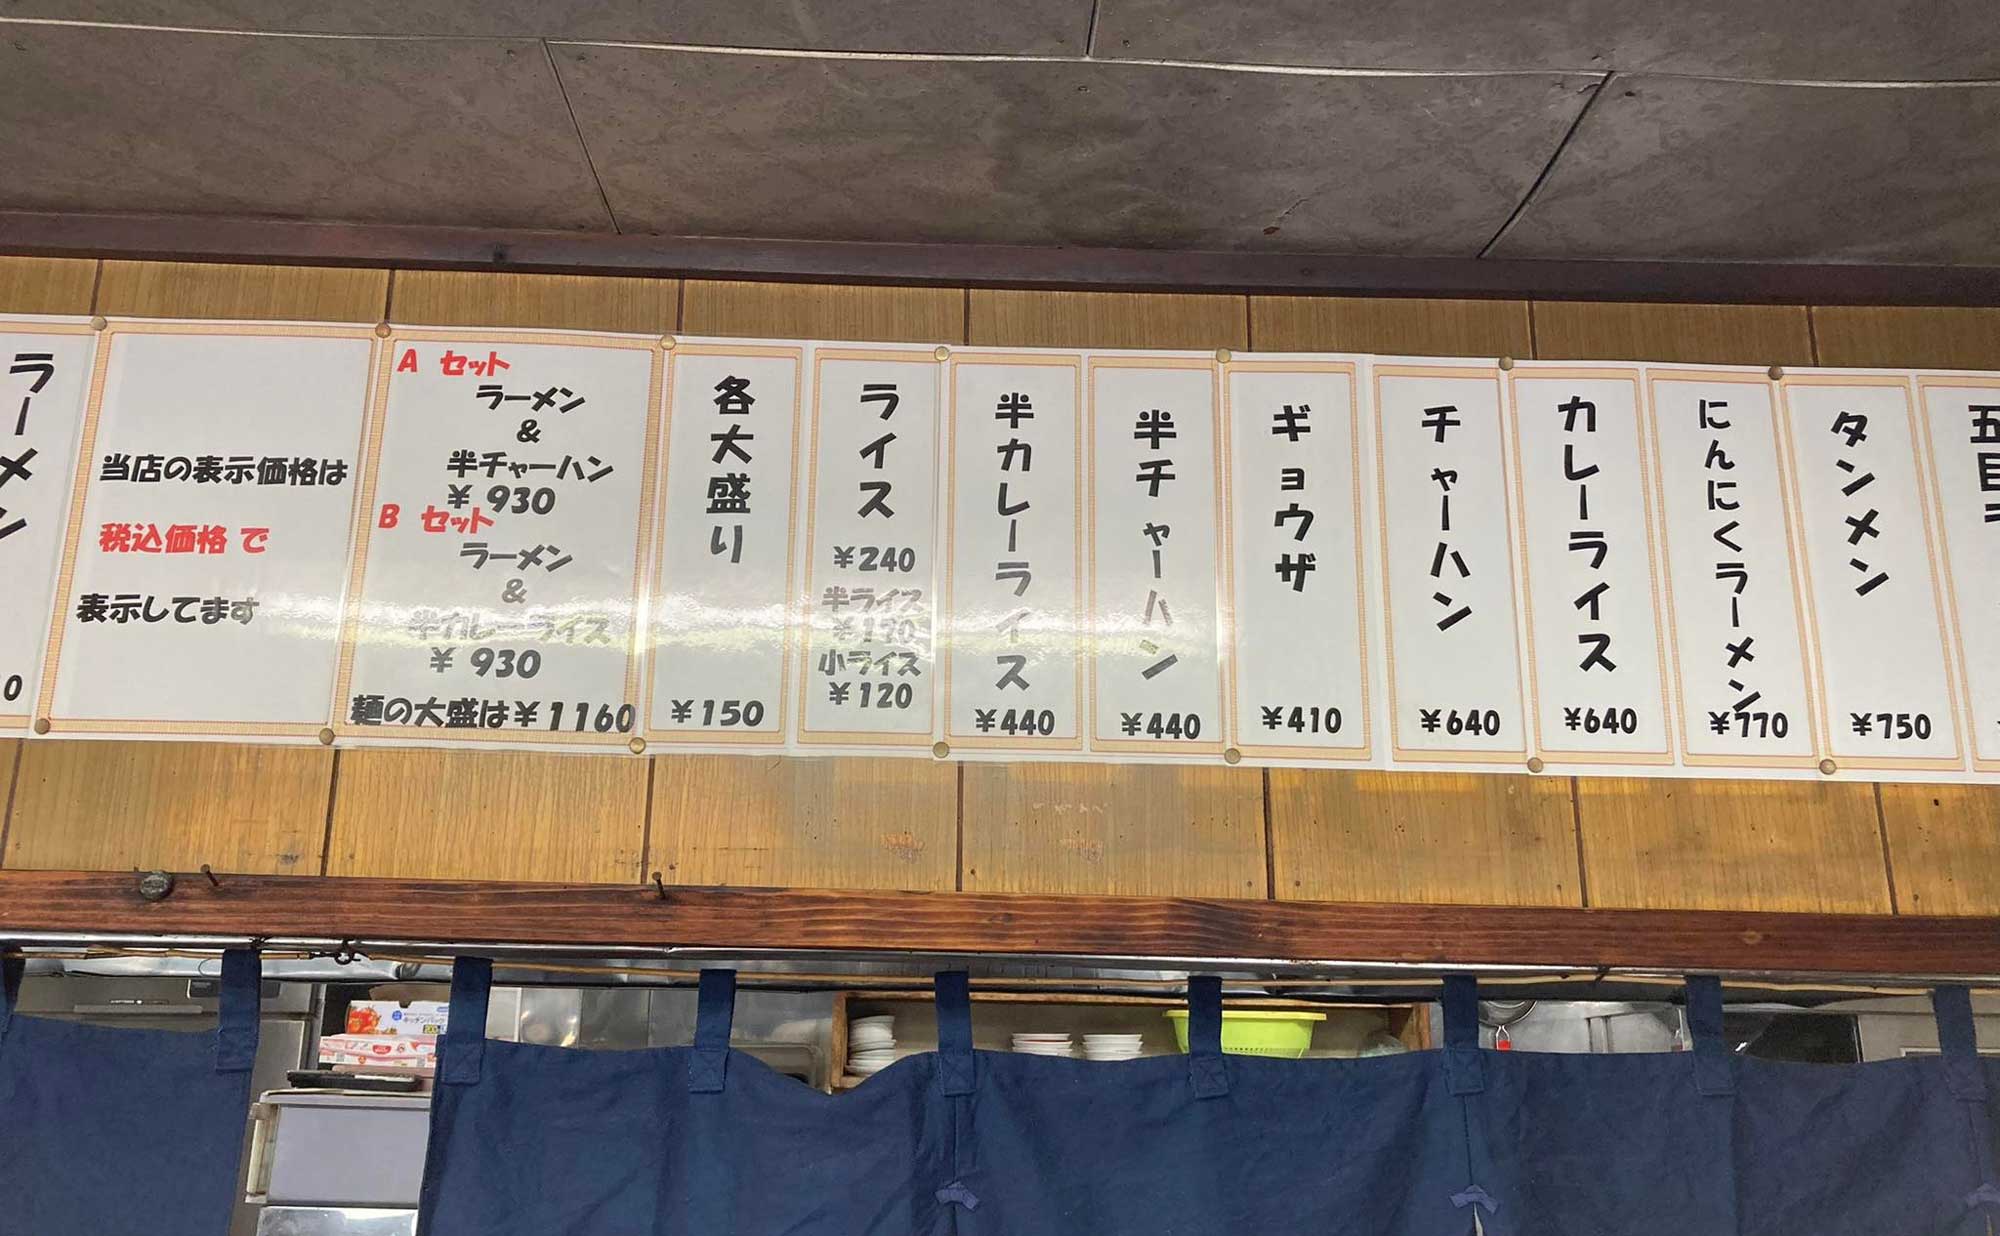 ラーメン
当店の表示価格は
税込価格で
表示してます
A セット
ラーメン
&
半チャーハン
¥ 930
B セット
ラーメン
&
半カレーライス
¥ 930
麺の大盛は¥1160
各大盛り
¥150
ライス
¥240
半ライス
¥190
小ライス
¥120
半カレーライス
¥440
半チャーハン
¥440
ギョウザ
¥410
チャーハン
¥640
カレーライス
¥640
にんにくラーメン
¥770
タンメン
¥750
五目
キッチンパック